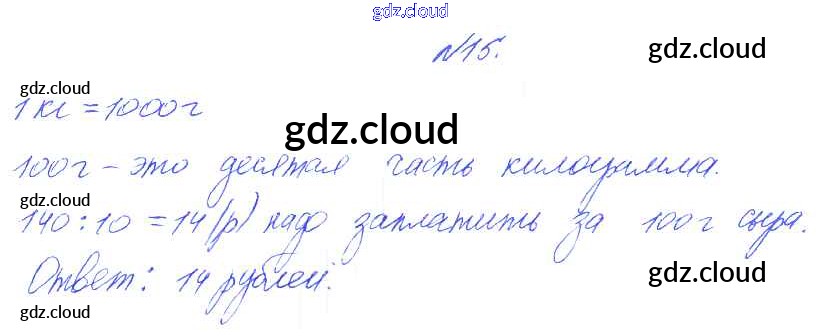 gdz.cloud
№15.
gdz.cloud
gdz.cloud
1 кг = 1000 г
gdz.cloud
100 г – это десятая часть килограмма.
gdz.cloud
140 : 10 = 14 (р) надо заплатить за 100 г сыра.
Ответ: 14 рублей.
gdz.cloud
gdz.cloud